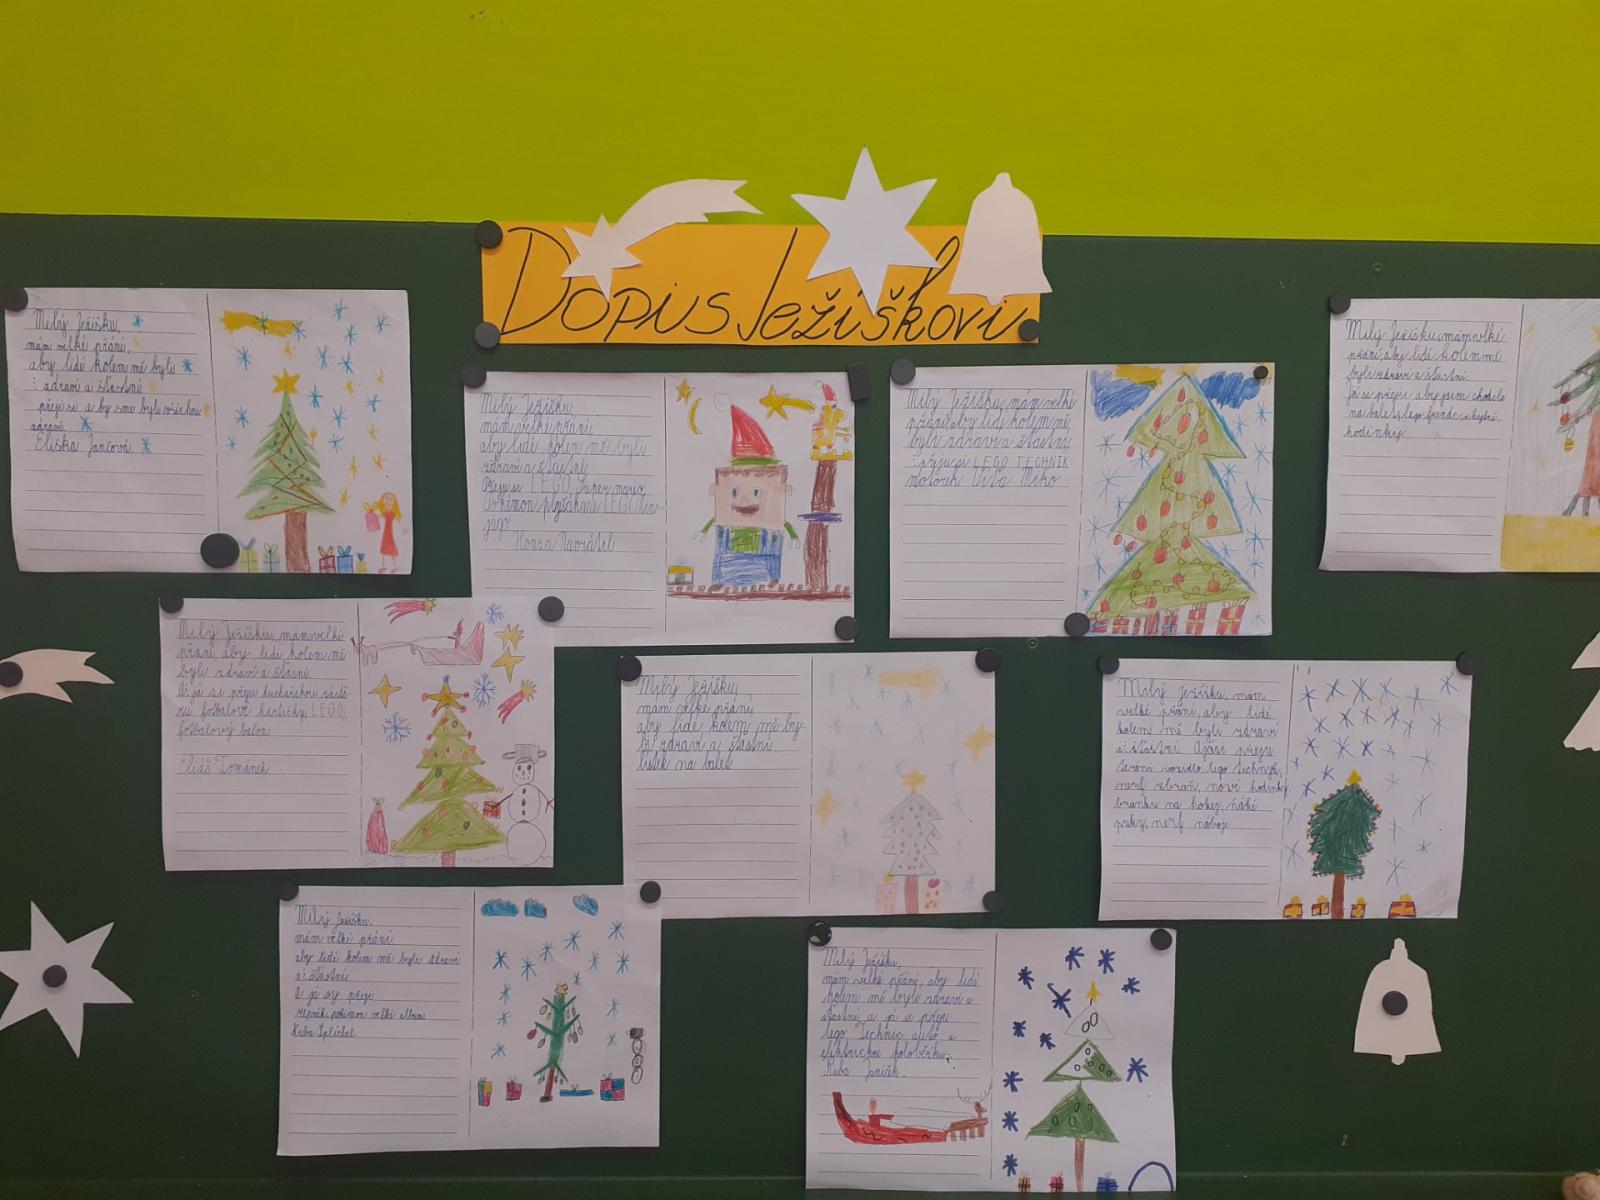 Dopis Ježíškovi
Milý Ježíšku,
mám velké přání,
aby lidé kolem mě byli
zdraví a šťastní
přeji si a by sme byli všichni
zdravé
Eliška Jančová
Milý Ježíšku,
mám velké přání,
aby lidé kolem mě byli
zdraví a šťastní.
Přeju si LEGO Super mario,
Pokémon plyšáka a LEGO Nin-
jago
Honza Navrátil
Milý Ježíšku, mám velké
přání, aby lidé kolem mě
byli zdraví a šťastní.
přeju si LEGO TECHNIK
motorek Víťa Miko
Milý Ježíšku, mám velké
přání, aby lidé kolem mě
byli zdraví a šťastní.
Já si přeji aby jsem chodila
na balet, lego friends, chytré
hodinky.
Milý Ježíšku, mám velké
přání, aby lidé kolem mě
byli zdraví a šťastní.
A já se přeju kuchařskou zástě-
ru fotbalové kartičky, LEGO,
fotbalový balon.
Eliáš Tománek
Milý Ježíšku,
mám velké přání,
aby lidé kolem mě by-
li zdraví a šťastní
lístek na balet
Milý Ježíšku, mám
velké přání, aby lidé
kolemi mě byli zdraví
a šťastní. Ajási přeju
teréní vozidlo, lego technyk,
nerf zbraň, nové hodinky,
branku na hokej, ňáké
puky, nerf náboje
Milý Ježíšku,
mám velké přání
aby lidé kolem mě byli zdraví
a šťastní
A já sy přeju
pokémon velké album
Kuba Šplíchal
Milý Ježíšku,
mám velké přání, aby lidé
kolem mě byli zdraví a
šťastní a já si přeju
lego Technic auto a
elektrickou koloběžku.
Kuba Janíček.